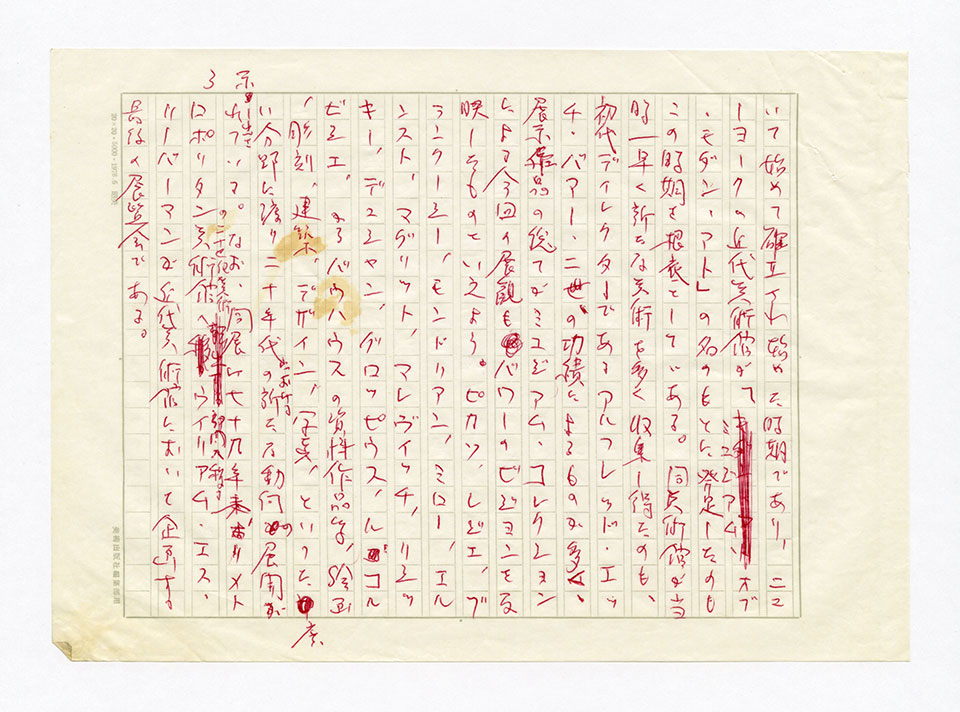 いて始めて確立され始めた時期であり、ニュ
ーヨークの近代美術館が「ミュジアム・オブ
・モダン・アート」の名のもとに発足したのも
この時期を根表としていある。同美術館が当
時一早く新たな美術を多く収集し得たのも、
初代ディレクターであるアルフレッド・エッ
チ・バアー・二世の功績によるものが多く、
展示作品の総てがミュジアム・コレクション
による今回の展観もバワーのビジョンを反
映したものといえよう。ピカソ、レジエ、ブ
ランクーシー、モンドリアン、ミロー、エル
ンスト、マグリット、マレヴィッチ、リシツ
キー、デュシャン、グロッピウス、ル・コル
ビュエ、バウハウスの資料作品等、絵画
、彫刻、建築、デザイン、写真、といった広
い分野に渡り二十年代における新たな動向の展開が
示されている。なお、同展は七十九年末、メト
ロポリタン美術館へウイリアム・エス・
リーバーマンが近代美術館において企画する
最後の展覧会である。
3
20×20